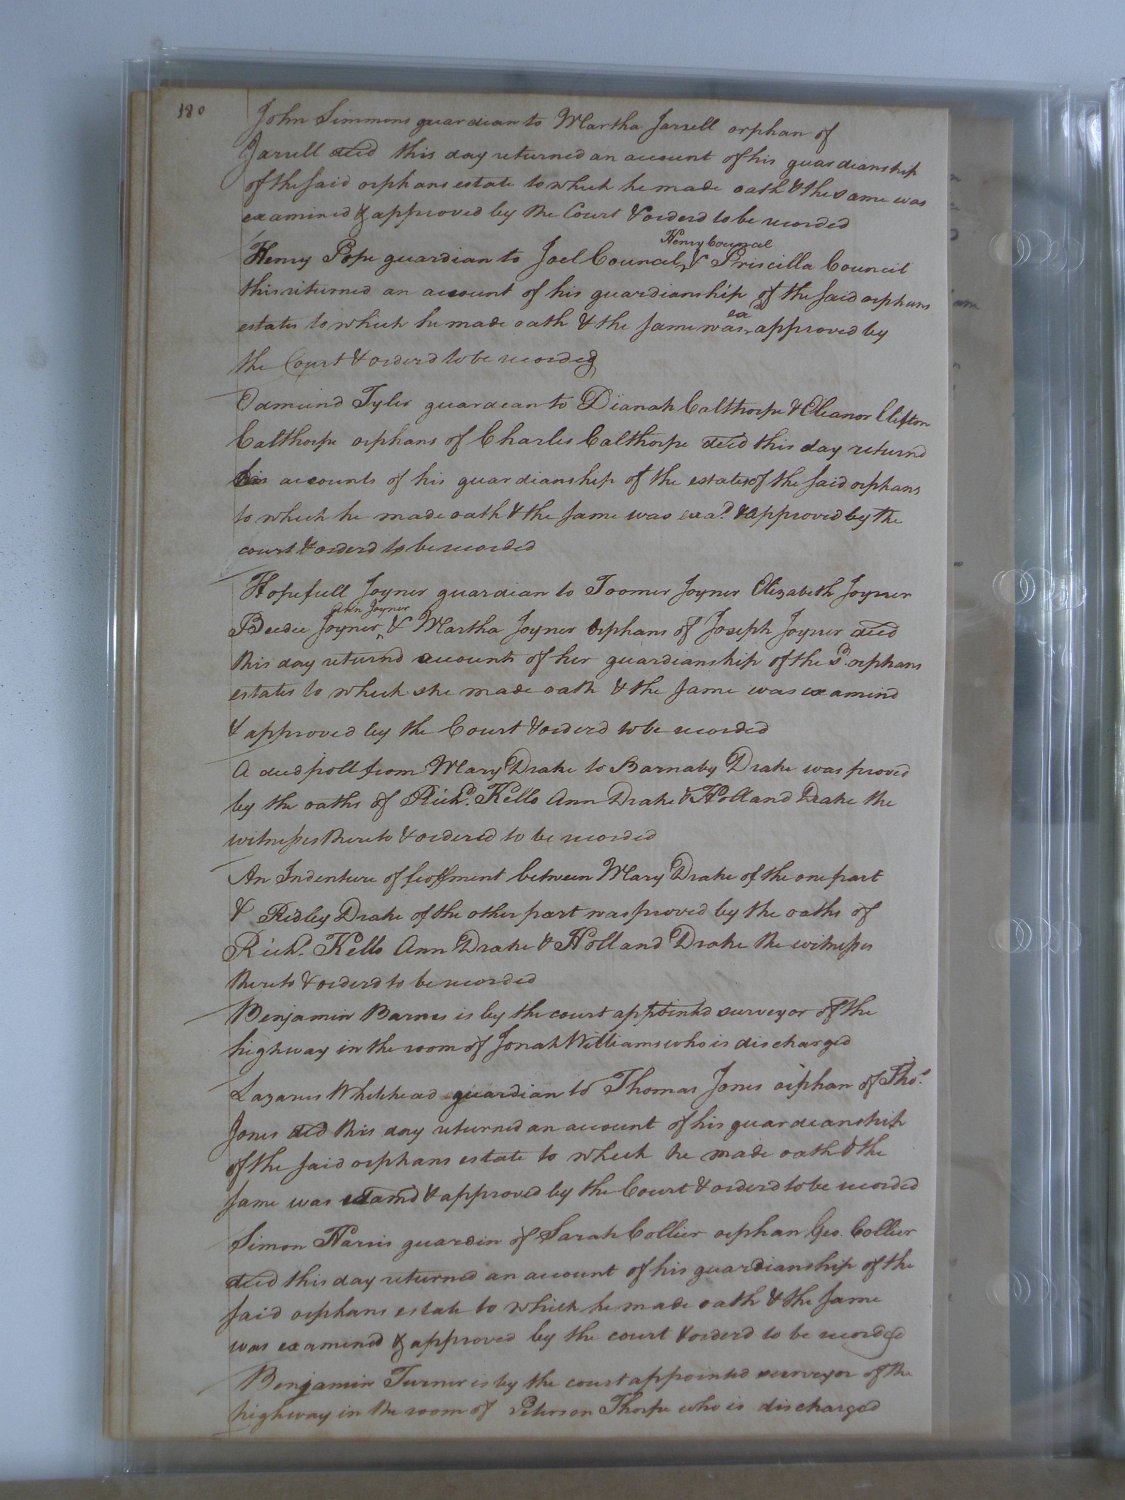 180
John Simmons guardian to Martha Jarrell orphan of
Jarrell decd this day returned an account of his guardianship
of the said orphans estate to which he made oath & the same was
examined & approved by the Court & orderd to be recorded
Henry Council
Henry Pope guardian to Joel Council & Priscilla Council
this returned an account of his guardianship of the said orphans
ea
estates to which he made oath & the same was approved by
the Court & orderd to be recorded
Edmund Tyler guardean to Dianah Calthorpe & Eleanor Clifton
Calthorpe orphans of Charles Calthorpe decd this day returnd
his accounts of his guardianship of the estates of the said orphans
to which he made oath & the same was exad. & approved by the
court & orderd to be recorded
Hopefull Joyner guardean to Toomer Joyner Elizabeth Joyner
John Joyner
Beedee Joyner & Martha Joyner orphans of Joseph Joyner decd
this day returnd accounts of her guardianship of the sd. orphans
estates to which she made oath & the same was examind
& approved by the Court & orderd to be recorded
A deed poll from Mary Drake to Barnaby Drake was proved
by the oaths of Richd. Kello Ann Drake & Holland Drake the
witnesses thereto & ordered to be recorded
An Indenture of feoffment between Mary Drake of the one part
& Ridley Drake of the other part was proved by the oaths of
Richd. Kello Ann Drake & Holland Drake the witnesses
thereto & orderd to be recorded
Benjamin Barnes is by the court appointd surveyor of the
highway in the room of Jonah Williams who is discharged
Lazarus Whitehead guardian to Thomas Jones orphan of Thos.
Jones decd this day returned an account of his guardeanship
of the said orphans estate to which he made oath & the
same was examd & approved by the Court & orderd to be recorded
Simon Harris guardin of Sarah Collier orphan Geo. Collier
decd this day returned an account of his guardianship of the
said orphans estate to which he made oath & the same
was examined & approved by the court & orderd to be recorded
Benjamin Turner is by the court appointed surveyor of the
highway in the room of Peterson Thorpe who is discharged